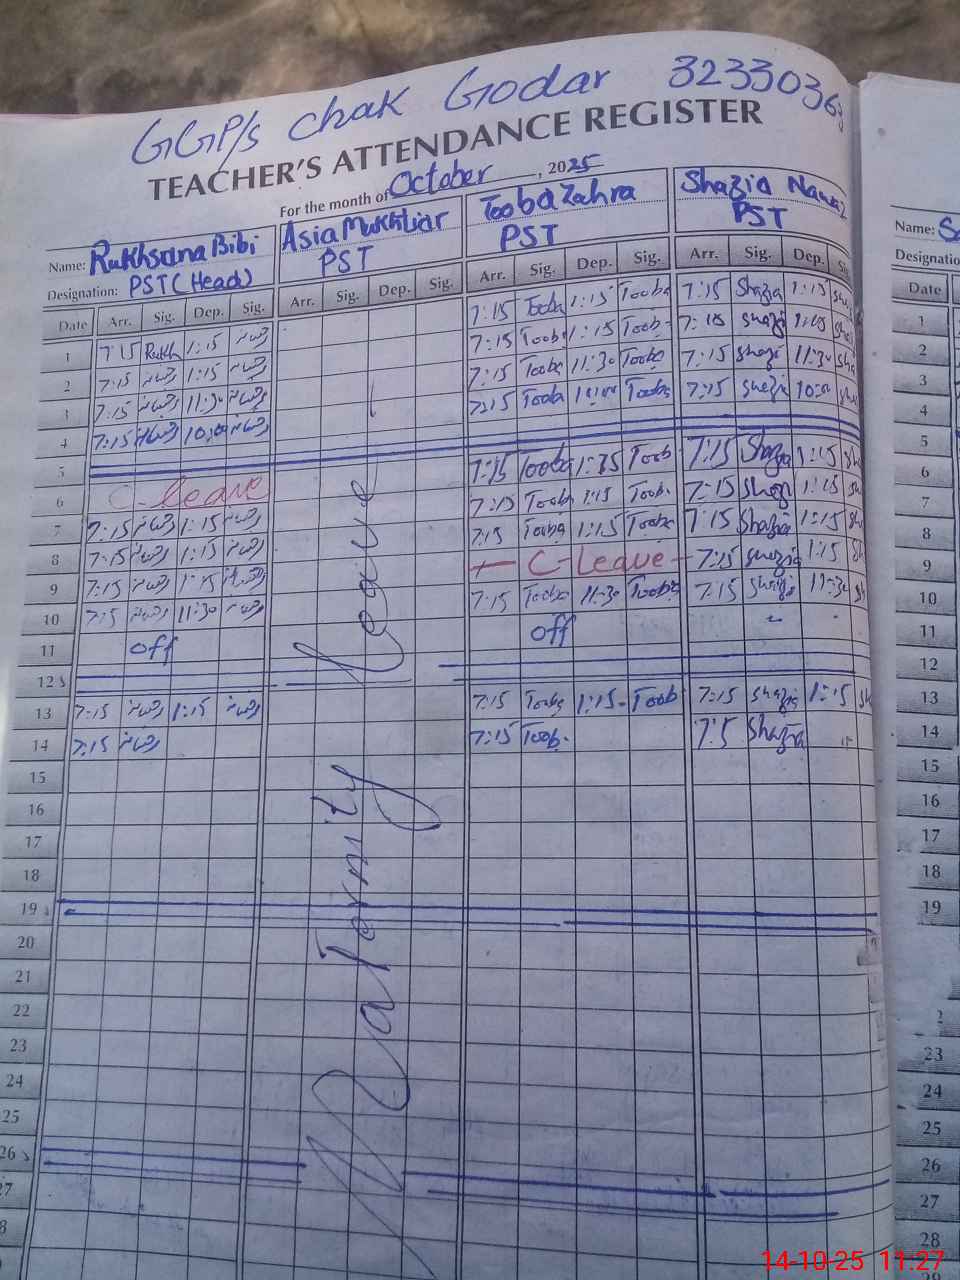 GGP/s chak Godar 32330363
TEACHER'S ATTENDANCE REGISTER
For the month of October, 2025
Name: Rukhsana Bibi Asia Mukhtiar Tooba Zahra Shazia Nawaz
Designation: PST (Head) PST PST PST
Date Arr. Sig. Dep. Sig. Arr. Sig. Dep. Sig. Arr. Sig. Dep. Sig. Arr. Sig. Dep.
1 7:15 Rukh 1:15 7:15 Tooba 1:15 Tooba 7:15 Shazia 1:15
2 7:15 1:15 7:15 Tooba 1:15 Tooba 7:15 1:15
3 7:15 11:30 7:15 Tooba 11:30 Tooba 7:15 11:30
4 7:15 10:00 7:15 Tooba 10:00 Tooba 7:15 10:00
5
6 C-leave 7:15 Tooba 1:15 Toob 7:15 Shazia 1:15
7 7:15 1:15 7:15 Tooba 1:15 Toob. 7:15 1:15
8 7:15 1:15 7:15 Tooba 1:15 Tooba 7:15 Shazia 1:15
9 7:15 1:15 C-Leave 7:15 Shazia 1:15
10 7:15 11:30 7:15 Tooba 11:30 Tooba 7:15 11:30
11 off off
12
13 7:15 1:15 7:15 Tooba 1:15 Toob 7:15 Shazia 1:15
14 7:15 7:15 Toob. 7:5 Shazia
Maternity leave
15
16
17
18
19
20
21
22
23
24
25
26
27
Name:
Date
1
2
3
4
5
6
7
8
9
10
11
12
13
14
15
16
17
18
19
23
24
25
26
27
28
14-10-25 11:27